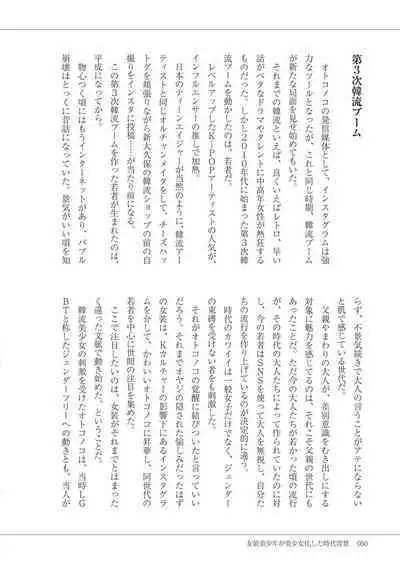 第3次韓流ブーム
オトコノコの発信媒体として、インスタグラムは強
力なツールとなったが、これと同じ時期、韓流ブーム
が新たな局面を見せ始めてもいた。
それまでの韓流といえば、良くいえばレトロ、早い
話がベタなドラマやタレントに中高年女性が熱狂する
ものだった。しかし2010年代に始まった第3次韓
流ブームを動かしたのは、若者だ。
レベルアップしたK-POPアーティストの人気が、
インフルエンサーの推しで加熱。
日本のティーンエイジャーが当然のように、韓流アー
ティストと同じオルチャンメイクをして、チーズハッ
トグを頬張りながら新大久保の韓流ショップの前の自
撮りをインスタに投稿……が当たり前になる。
この第3次韓流ブームを作った若者が生まれたのは、
平成になってから。
物心つく頃にはもうインターネットがあり、バブル
崩壊はとっくに昔話になっていた。景気がいい頃を知
らず、不景気続きで大人の言うことがアテにならない
と肌で感じている世代だ。
父親やまわりの大人が、差別意識をむき出しにする
対象に魅力を感じてるのは、それこそ父親の世代にも
あったことだ。ただ今の大人たちが若かった頃の流行
が、その時代の大人たちによって作られていたのに対
し、今の若者はSNSを使って大人を無視し、自分た
ちの流行を作り上げているのが決定的に違う。
時代のカワイイは一般女子だけでなく、ジェンダー
の束縛を受けない者をも刺激した。
それがオトコノコの覚醒に結びついたと言っていい
だろう。それまでオヤジの隠された愉しみだったはず
の女装は、Kカルチャーの影響下にあるインスタグラ
ムをかして、かわいいオトコノコに昇華し、同世代の
若者を中心に世間の注目を集めた。
ここで注目したいのは、女装がそれまでとはまった
く違った文脈で動き始めた、ということだ。
韓流美少女の刺激を受けたオトコノコは、当時LG
BTと称したジェンダーフリーへの動きとも、当人が
女装美少年が美少女化した時代背景
050